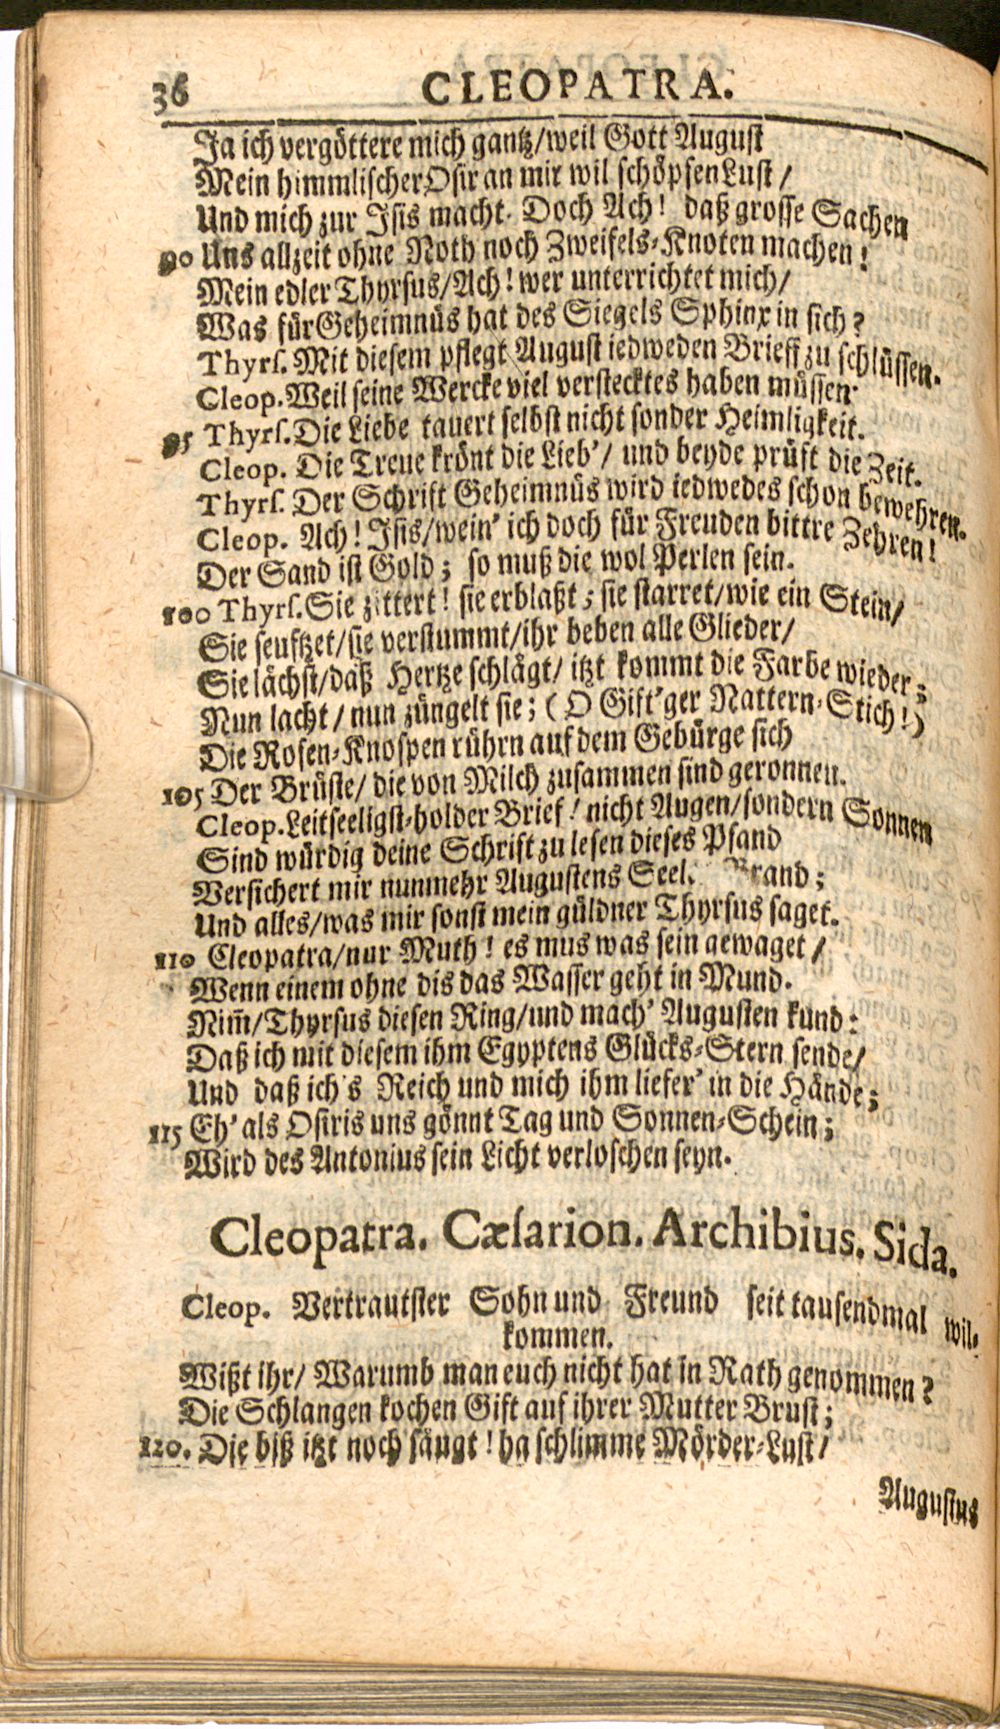 36 CLEOPATRA.
Ja ich vergöttere mich gantz/weil Gott August
Mein himmlischer Osir an mir wil schöpfen Lust /
Und mich zur Isis macht. Doch Ach! daß grosse Sachen
90 Uns allzeit ohne Noth noch Zweifels-Knoten machen!
Mein edler Thyrsus/Ach! wer unterrichtet mich/
Was für Geheimnüs hat des Siegels Sphinx in sich?
Thyrs. Mit diesem pflegt August iedweden Brieff zu schlüssen.
Cleop. Weil seine Wercke viel verstecktes haben müssen.
95 Thyrs. Die Liebe tauert selbst nicht sonder Heimligkeit.
Cleop. Die Treue krönt die Lieb'/ und beyde prüft die Zeit.
Thyrs. Der Schrift Geheimnüs wird iedwedes schon bewehren.
Cleop. Ach! Isis/wein' ich doch für Freuden bittre Zehren!
Der Sand ist Gold; so muß die wol Perlen sein.
100 Thyrs. Sie zittert! sie erblaßt; sie starret/wie ein Stein/
Sie seuftzet/sie verstummt/ihr beben alle Glieder/
Sie lächst/daß Hertze schlägt/ itzt kommt die Farbe wieder;
Nun lacht / nun züngelt sie; (O Gift'ger Nattern-Stich!)
Die Rosen-Knospen rührn auf dem Gebürge sich
105 Der Brüste/ die von Milch zusammen sind geronnen.
Cleop. Leitseeligst-holder Brief! nicht Augen/sondern Sonnen
Sind würdig deine Schrift zu lesen dieses Pfand
Versichert mir nunmehr Augustens Seel. Brand;
Und alles/was mir sonst mein güldner Thyrsus saget.
110 Cleopatra/nur Muth! es mus was sein gewaget /
Wenn einem ohne dis das Wasser geht in Mund.
Nim̃/Thyrsus diesen Ring/und mach' Augusten kund:
Daß ich mit diesem ihm Egyptens Glücks-Stern sende/
Und daß ich's Reich und mich ihm liefer' in die Hände;
115 Eh' als Osiris uns gönnt Tag und Sonnen-Schein;
Wird des Antonius sein Licht verloschen seyn.
Cleopatra. Cæsarion. Archibius. Sida.
Cleop. Vertrautster Sohn und Freund seit tausendmal wil-
kommen.
Wißt ihr/ Warumb man euch nicht hat in Rath genommen?
Die Schlangen kochen Gift auf ihrer Mutter Brust;
120. Die biß itzt noch säugt! ha schlimme Mörder-Lust/
Augustus